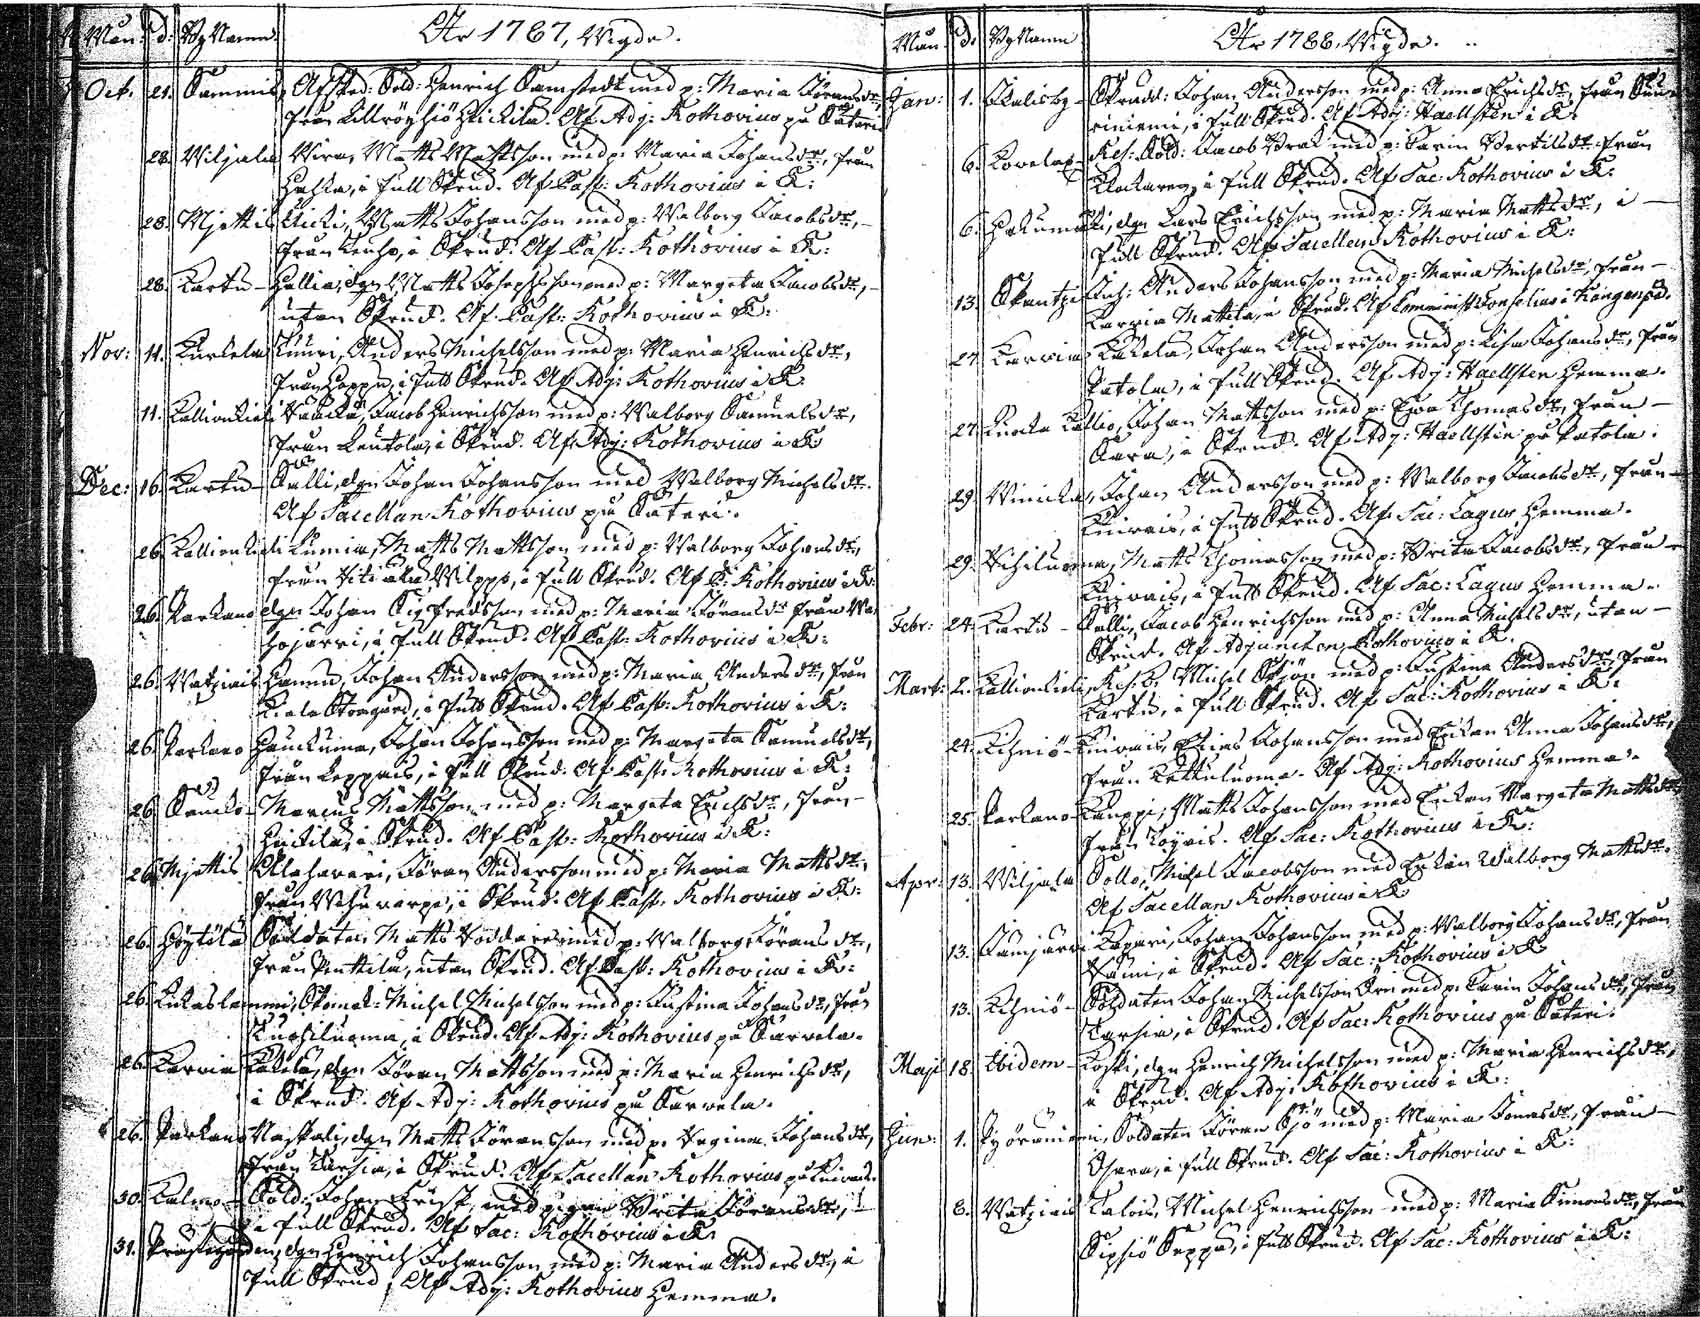 Mån: d: ByNamn. År 1787, Vigde.
Oct. 21. Sammis, Afsked: Sold: Henrich Samstedt med p: Maria Jöransdr,
från Killröysiö Heickilä. Af Adj: Kothovius på Säteri
28. Viljala Wira, Matts Mattsson med p: Maria Johansdr, från
i full Skrud. Af Past: Kothovius i K:
28. Mjettis Matts Johansson med p: Walborg Jacobsdr,
från i Skrud. Af Past: Kothovius i K:
28. Kartu Hallia, dgn Matts Josephsson med p: Margeta Jacobsdr,
utan Skrud. Af Past: Kothovius i K:
Nov: 11. Kurkela Anders Michelsson med p: Maria Henrichsdr,
från Hoppu, i full Skrud. Af Adj: Kothovius i K
11. Kallionkieli Jacob Henrichsson med p: Walborg Samuelsdr,
från Lentola, i Skrud. Af Adj: Kothovius i K
Dec: 16. Kartu Salli, dgn Johan Johansson med Walborg Michelsdr.
Af Sacellan Kothovius på Säteri.
26. Kallionkieli Kumia, Matts Mattsson med p: Walborg Johansdr,
från Wilppo, i full Skrud. Af P: Kothovius i K:
26. Parkano dgn Johan Sigfredsson med p: Maria Jöransdr från Wa-
hojärvi, i full Skrud. Af Past: Kothovius i K:
26. Vatziais Hannu, Johan Andersson med p: Maria Andersdr, från
Storgård, i full Skrud. Af Past: Kothovius i K:
26. Parkano Hauckuma, Johan Johansson med p: Margeta Samuelsdr,
från Leppais, i full Skrud. Af Past: Kothovius i K:
26. Sancko Marcus Mattsson med p: Margeta Erichsdr, från
Heickilä, i Skrud. Af Past: Kothovius i K:
26. Mjettis Alahavari, Jöran Andersson med p: Maria Mattsdr,
från i Skrud. Af Past: Kothovius i K:
26. Höytölä Soldaten Matts med p: Walborg Jöransdr,
från Penttilä, utan Skrud. Af Past: Kothovius i K:
26. Lukaslammi, Skomak: Michel Michelsson med p: Justina Johansdr, från
Kuohiluoma, i Skrud. Af Adj: Kothovius på Sarvela.
26. Karvia Kakela, dgn Jöran Mattsson med p: Maria Henrichsdr,
i Skrud. Af Adj: Kothovius på Sarvela.
26. Parkano Naskali, dgn Matts Jöransson med p: Regina Johansdr,
från Karsia, i Skrud. Af Sacellan Kothovius på Kuivais.
30. Kalmo Sold: Johan Frisk, med pigan Brita Jöransdr,
i full Skrud. Af Sac: Kothovius i K
31. Prästegården, dgn Henrich Johansson med p: Maria Andersdr, i
full Skrud. Af Adj: Kothovius Hemma.
Mån: d: ByNamn År 1788, Vigde.
Jan: 1. Skalisby Skrädd: Johan Andersson med p: Anna Erichsdr, från
riniemi, i full Skrud. Af Adj: Haellsten i K:
6. Kovelax Res: Sold: Jacob Brax med p: Carin Bertilsdr från
i full Skrud. Af Sac: Kothovius i K:
6. dgn Lars Erichsson med p: Maria Mattsdr, i
full Skrud. Af Sacellan Kothovius i K:
13. Skantze Anders Johansson med p: Maria Michelsdr, från
Karvia Mattila, i Skrud. Af Comminist: Forselius i Kangenpä.
27. Karvia Kakela, Johan Andersson med p: Lisa Johansdr, från
Patola, i full Skrud. Af Adj: Haellsten Hemma.
27. Kallio, Johan Mattsson med p: Ewa Thomasdr, från
Sara, i Skrud. Af Adj: Haellsten på Patola.
29. Winicka, Johan Andersson med p: Walborg Jacobsdr, från
Kuivais, i full Skrud. Af Sac: Lagus Hemma.
29. Vihiluoma, Matts Thomasson med p: Brita Jacobsdr, från
Kuivais, i full Skrud. Af Sac: Lagus Hemma.
Febr: 24. Kartu Salli, Jacob Henrichsson med p: Anna Michelsdr, utan
Skrud. Af Adjuncten Kothovius i K.
Mart: 2. Kallionkieli, Res: S: Michel Skön med p: Justina Andersdr, från
Kartu, i full Skrud. Af Sac: Kothovius i K:
24. Kihniö Kuivais, Elias Johansson med Enkan Anna Johansdr,
från Kettuluoma. Af Adj: Kothovius Hemma.
25. Parkano Kauppi, Matts Johansson med Enkan Margeta Mattsdr,
från Af Sac: Kothovius i K:
Apr: 13. Viljala Sollo, Michel Jacobsson med Enkan Walborg Mattsdr.
Af Sacellan Kothovius i K
13. Jämijärvi Kapari, Johan Johansson med p: Walborg Johansdr, från
i Skrud. Af Sac: Kothovius i K
13. Kihniö Soldaten Johan Michelsson med p: Carin Johansdr, från
Karsia, i Skrud. Af Sac: Kothovius på Säteri.
Maji 18. Ibidem Koski, dgn Henrich Michelsson med p: Maria Henrichsdr,
i Skrud. Af Adj: Kothovius i K:
Jun: 1. Pyöräniemi, Soldaten Jöran Sjö med p: Maria Jonasdr, från
i full Skrud. Af Sac: Kothovius i K:
8. Vatziais Kalois, Michel Henrichsson med p: Maria Simonsdr, från
Sipsiö Seppä, i full Skrud. Af Sac: Kothovius i K: